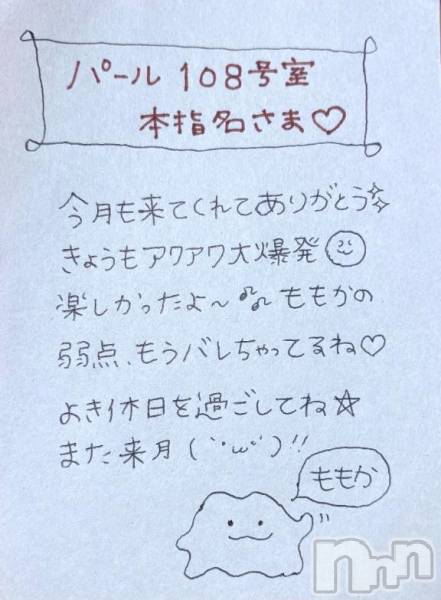 パール 108号室
本指名さま♡
今月も来てくれてありがとう✨
きょうもアワアワ大爆発☺
楽しかったよ〜♫ ももかの
弱点、もうバレちゃってるね♡
よき休日を過ごしてね☆
また来月(´・ω・`)!!
ももか
nnn